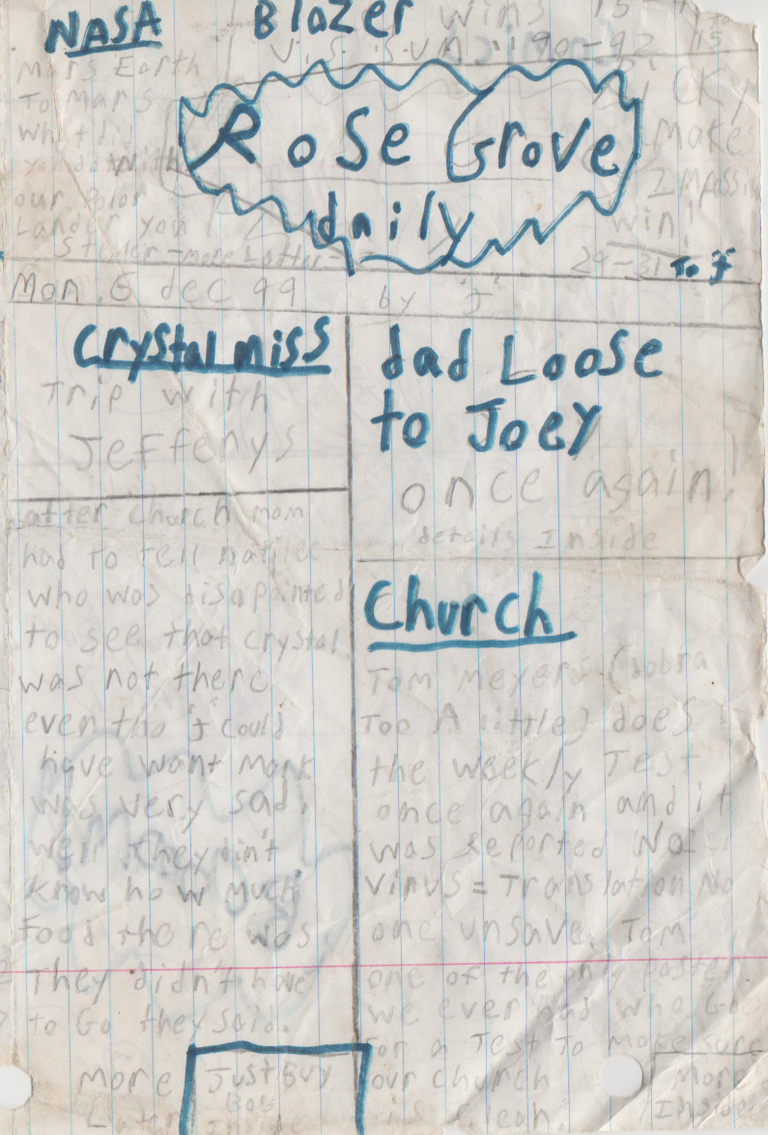 NASA
Mars Earth
To Mars
what did
you do with
our Polor
Lander you
Stealer - more Latter -
Blazer wins
90-92
make
Impossi
win!
29-31 To J
Rose Grove
daily
Mon, 6 dec 99 by "J"
Crystal miss
Trip with
Jefferys
after church mom
had to tell
who was disapointed
to see that crystal
was not there
even tho "J" could
have want Mark
was very sad.
well they din't
know how much
Food there was
They didn't have
to Go they said.
more
Later
Just Buy
Bob
Inside
dad Loose
to Joey
once again!
details Inside
Church
Tom meyers (
Too A little) does
the weekly Test
once again and it
was reported NO
Virus = Translation No
one unsave. Tom
one of the only paster
we ever had who Goes
for a Test To make sure
our church
is clean.
More
Inside